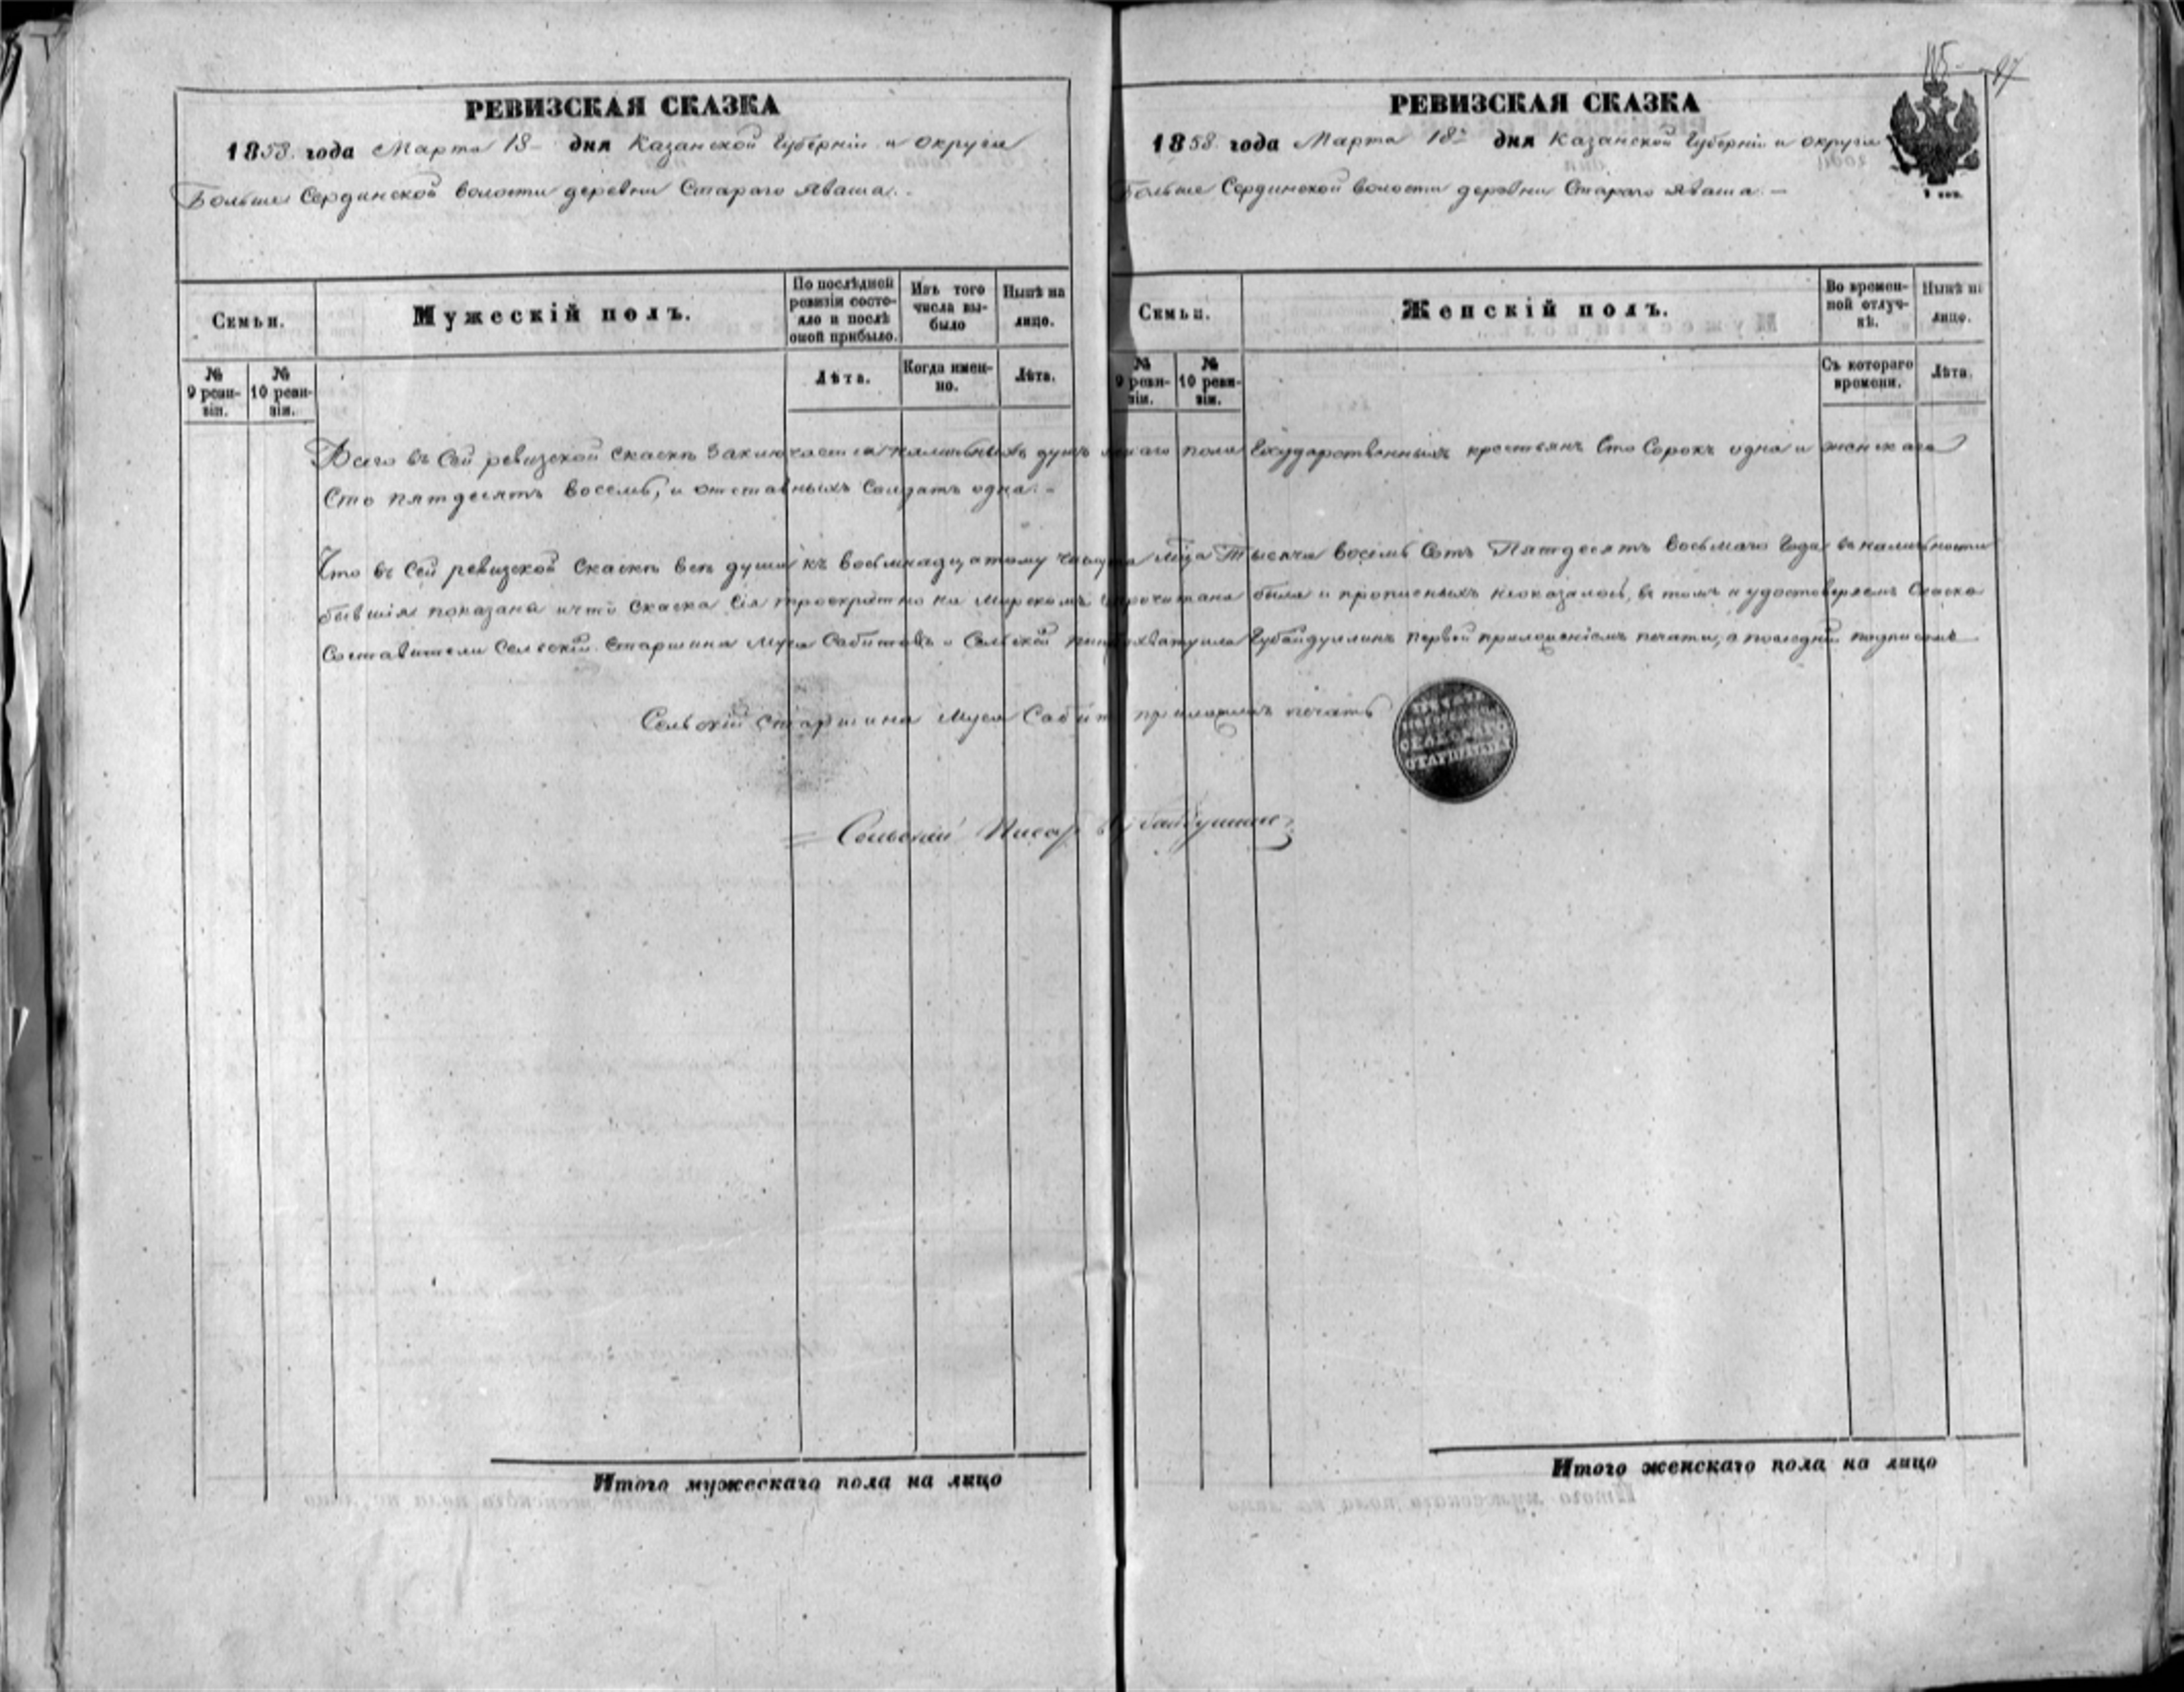 РЕВИЗСКАЯ СКАЗКА
1858 года Марта 18 дня Казанской Губернiи и округи
Больше Сердинской волости деревни Стараго Яваша.
Семьи.
Мужескiй полъ.
По послѣдней ревизiи состояло и послѣ оной прибыло.
Изъ того числа выбыло
Нынѣ на лицо.
№ 9 ревизiи.
№ 10 ревизiи.
Лѣта.
Когда именно.
Лѣта.
РЕВИЗСКАЯ СКАЗКА
1858 года Марта 18 дня Казанской Губернiи и округи
Больше Сердинской волости деревни Стараго Яваша. —
115
97
Семьи.
Женскiй полъ.
Во временной отлучкѣ.
Нынѣ на лицо.
№ 9 ревизiи.
№ 10 ревизiи.
Съ котораго времени.
Лѣта.
Всего въ Сей ревизской скаскѣ заключается наличныхъ душъ пола Государственныхъ крестьянъ Сто Сорокъ одна и женскаго
Сто пятдесятъ восемь, и отставныхъ Солдатъ одна. -
Что въ Сей ревизской Скаскѣ всѣ души къ восьмнадцатому Тысяча восемь Сотъ Пятдесятъ восьмаго Года въ наличности
бывшiя показаны и что скаска сiя троекратно на Мирскомъ прочитана была и прописныхъ неоказалось, въ томъ и удостоверяемъ Скаско
Составители Сельскiй Старшина Муса Сабитовъ и Сельской Губайдуллинъ первой приложенiемъ печати, а последнiй подписомъ
Сельскiй старшина Муса Сабит приложилъ печать
СЕЛЬСКАГО
СТАРШИНЫ
Сельскiй Писарь Губайдуллинъ
Итого мужескаго пола на лицо
Итого женскаго пола на лицо